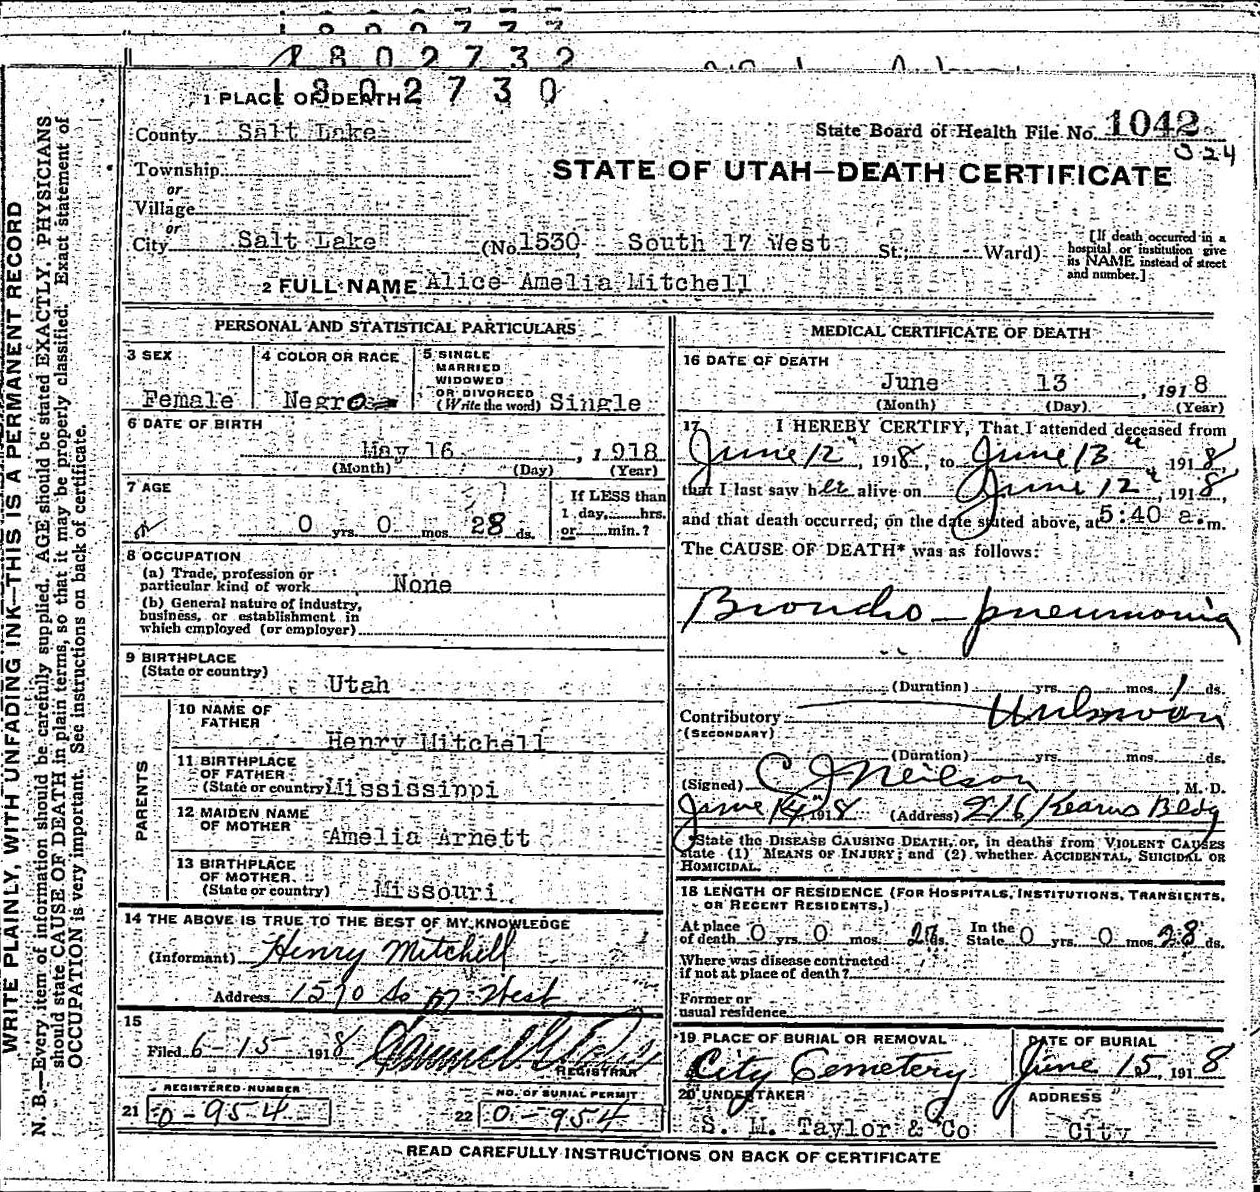 1802732
1802730
1 PLACE OF DEATH
County Salt Lake
State Board of Health File No. 1042
024
Township
or
Village
or
STATE OF UTAH—DEATH CERTIFICATE
City Salt Lake (No 1530 South 17 West St.; Ward)
[If death occurred in a
hospital or institution give
its NAME instead of street
and number.]
2 FULL NAME Alice Amelia Mitchell
PERSONAL AND STATISTICAL PARTICULARS
3 SEX
Female
4 COLOR OR RACE
Negro
5 SINGLE
MARRIED
WIDOWED
OR DIVORCED
(Write the word) Single
6 DATE OF BIRTH
May 16, 1918
(Month) (Day) (Year)
7 AGE
0 yrs. 0 mos. 28 ds.
If LESS than
1 day, hrs.
or min.?
8 OCCUPATION
(a) Trade, profession or
particular kind of work None
(b) General nature of industry,
business, or establishment in
which employed (or employer)
9 BIRTHPLACE
(State or country)
Utah
PARENTS
10 NAME OF
FATHER
Henry Mitchell
11 BIRTHPLACE
OF FATHER
(State or country) Mississippi
12 MAIDEN NAME
OF MOTHER
Amelia Arnett
13 BIRTHPLACE
OF MOTHER
(State or country) Missouri
14 THE ABOVE IS TRUE TO THE BEST OF MY KNOWLEDGE
(Informant) Henry Mitchell
Address So 17 West
15
Filed 6-15 1918
REGISTRAR
REGISTERED NUMBER
21 0-954
NO. OF BURIAL PERMIT
22 0-954
MEDICAL CERTIFICATE OF DEATH
16 DATE OF DEATH
June 13, 1918
(Month) (Day) (Year)
17 I HEREBY CERTIFY, That I attended deceased from
June 12", 1918, to June 13" 1918,
that I last saw her alive on June 12", 1918,
and that death occurred, on the date stated above, at 5:40 a.m.
The CAUSE OF DEATH* was as follows:
Broncho-pneumonia
(Duration) yrs. mos. 1 ds.
Contributory Unknown
(SECONDARY)
(Duration) yrs. mos. ds.
(Signed) C J Neilson, M. D.
June 14" 1918 (Address) 216 Kearns Bldg
*State the DISEASE CAUSING DEATH, or, in deaths from VIOLENT CAUSES
state (1) MEANS OF INJURY; and (2) whether ACCIDENTAL, SUICIDAL OR
HOMICIDAL.
18 LENGTH OF RESIDENCE (FOR HOSPITALS, INSTITUTIONS, TRANSIENTS,
OR RECENT RESIDENTS.)
At place
of death 0 yrs. 0 mos. ds.
In the
State 0 yrs. 0 mos. 28 ds.
Where was disease contracted
if not at place of death?
Former or
usual residence
19 PLACE OF BURIAL OR REMOVAL
City Cemetery
DATE OF BURIAL
June 15, 1918
20 UNDERTAKER
S. M. Taylor & Co
ADDRESS
City
READ CAREFULLY INSTRUCTIONS ON BACK OF CERTIFICATE
WRITE PLAINLY, WITH UNFADING INK—THIS IS A PERMANENT RECORD
N. B.—Every item of information should be carefully supplied. AGE should be stated EXACTLY. PHYSICIANS
should state CAUSE OF DEATH in plain terms, so that it may be properly classified. Exact statement of
OCCUPATION is very important. See instructions on back of certificate.